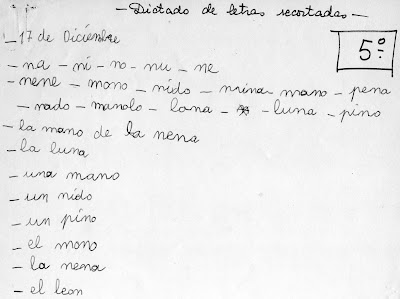 - Dictado de letras recortadas -
- 17 de Diciembre
5º
- na - ni - no - nu - ne
- nene - mono - nido - mina - mano - pena
- nado - manolo - lana - luna - pino
- la mano de la nena
- la luna
- una mano
- un nido
- un pino
- el mono
- la nena
- el leon